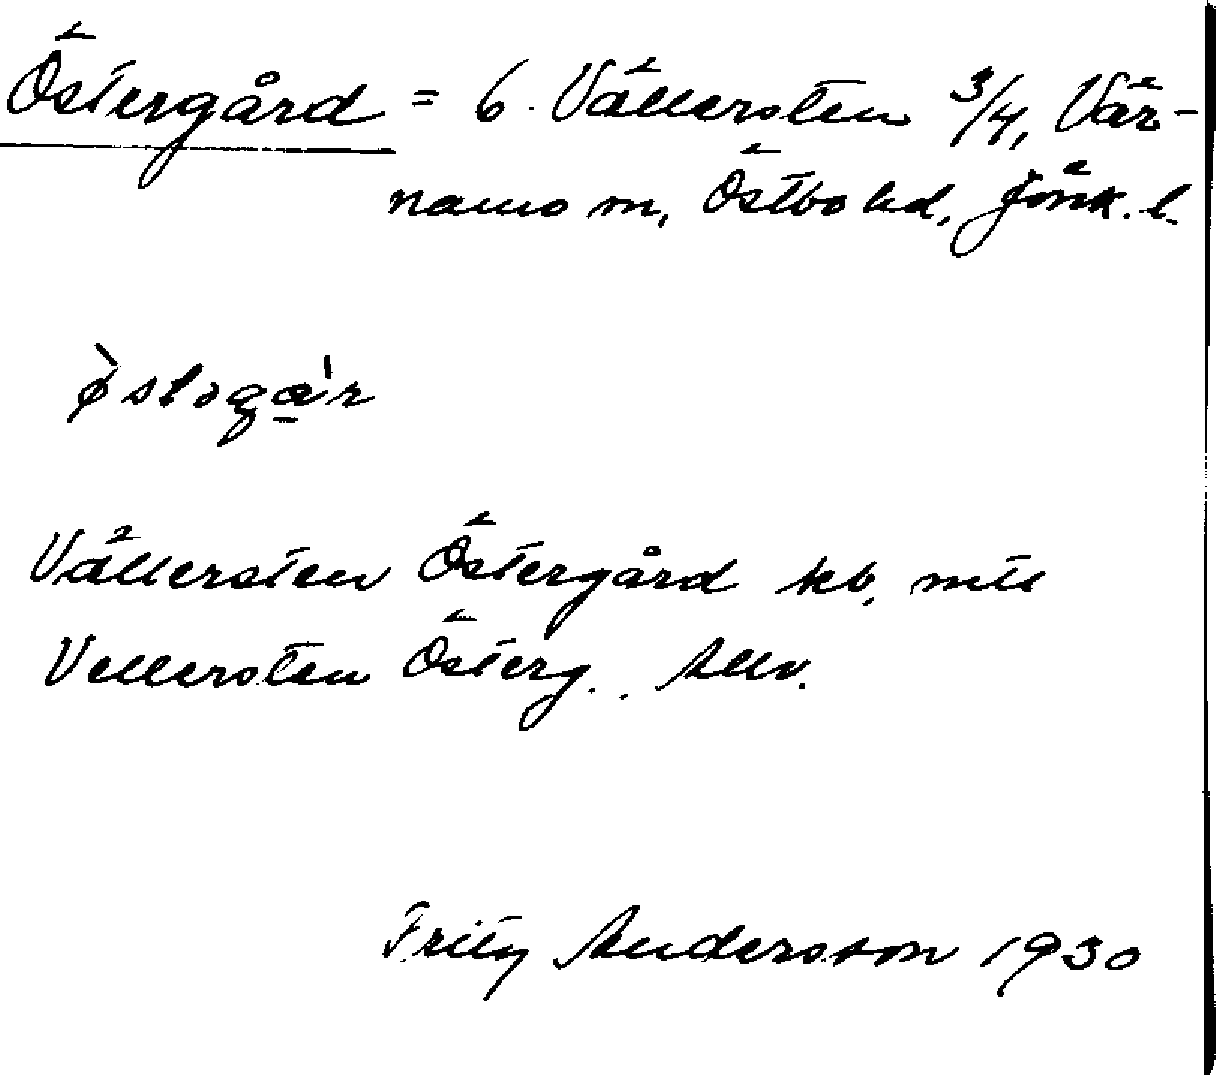 Östergård = 6. Vällersten 3/4, Vär-
namo m, Östbo hd, Jönk. l.
Vällersten Östergård kb,
Vellersten Österg.
Fritz Andersson 1930